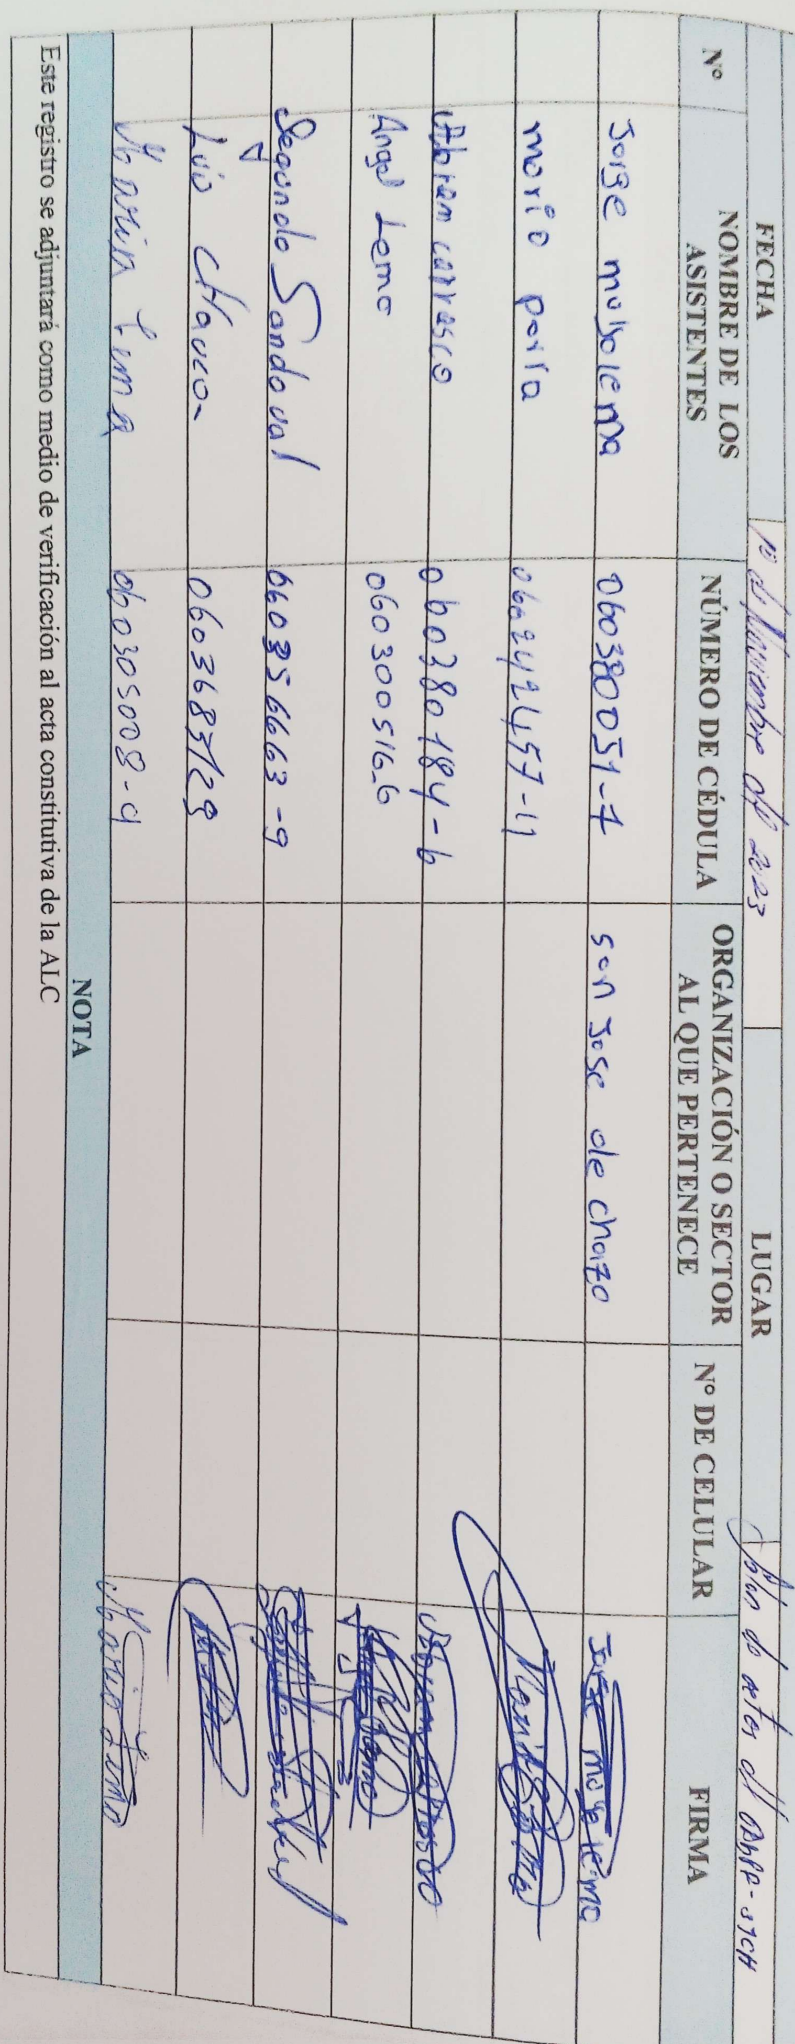 FECHA 10 de Noviembre del 2023 LUGAR Salon de actos del GADPR-SJCH
Nº NOMBRE DE LOS ASISTENTES NÚMERO DE CÉDULA ORGANIZACIÓN O SECTOR AL QUE PERTENECE Nº DE CELULAR FIRMA
Jorge muyolema 060380051-7 san Jose de chazo Jorge muyolema
morio parra
Abram carrasco 060280184-6
Angel Lema 060300516-6
Segundo Sandoval 060356663-9
Luis chauca
Maria Lema 060305008-9
NOTA
Este registro se adjuntará como medio de verificación al acta constitutiva de la ALC